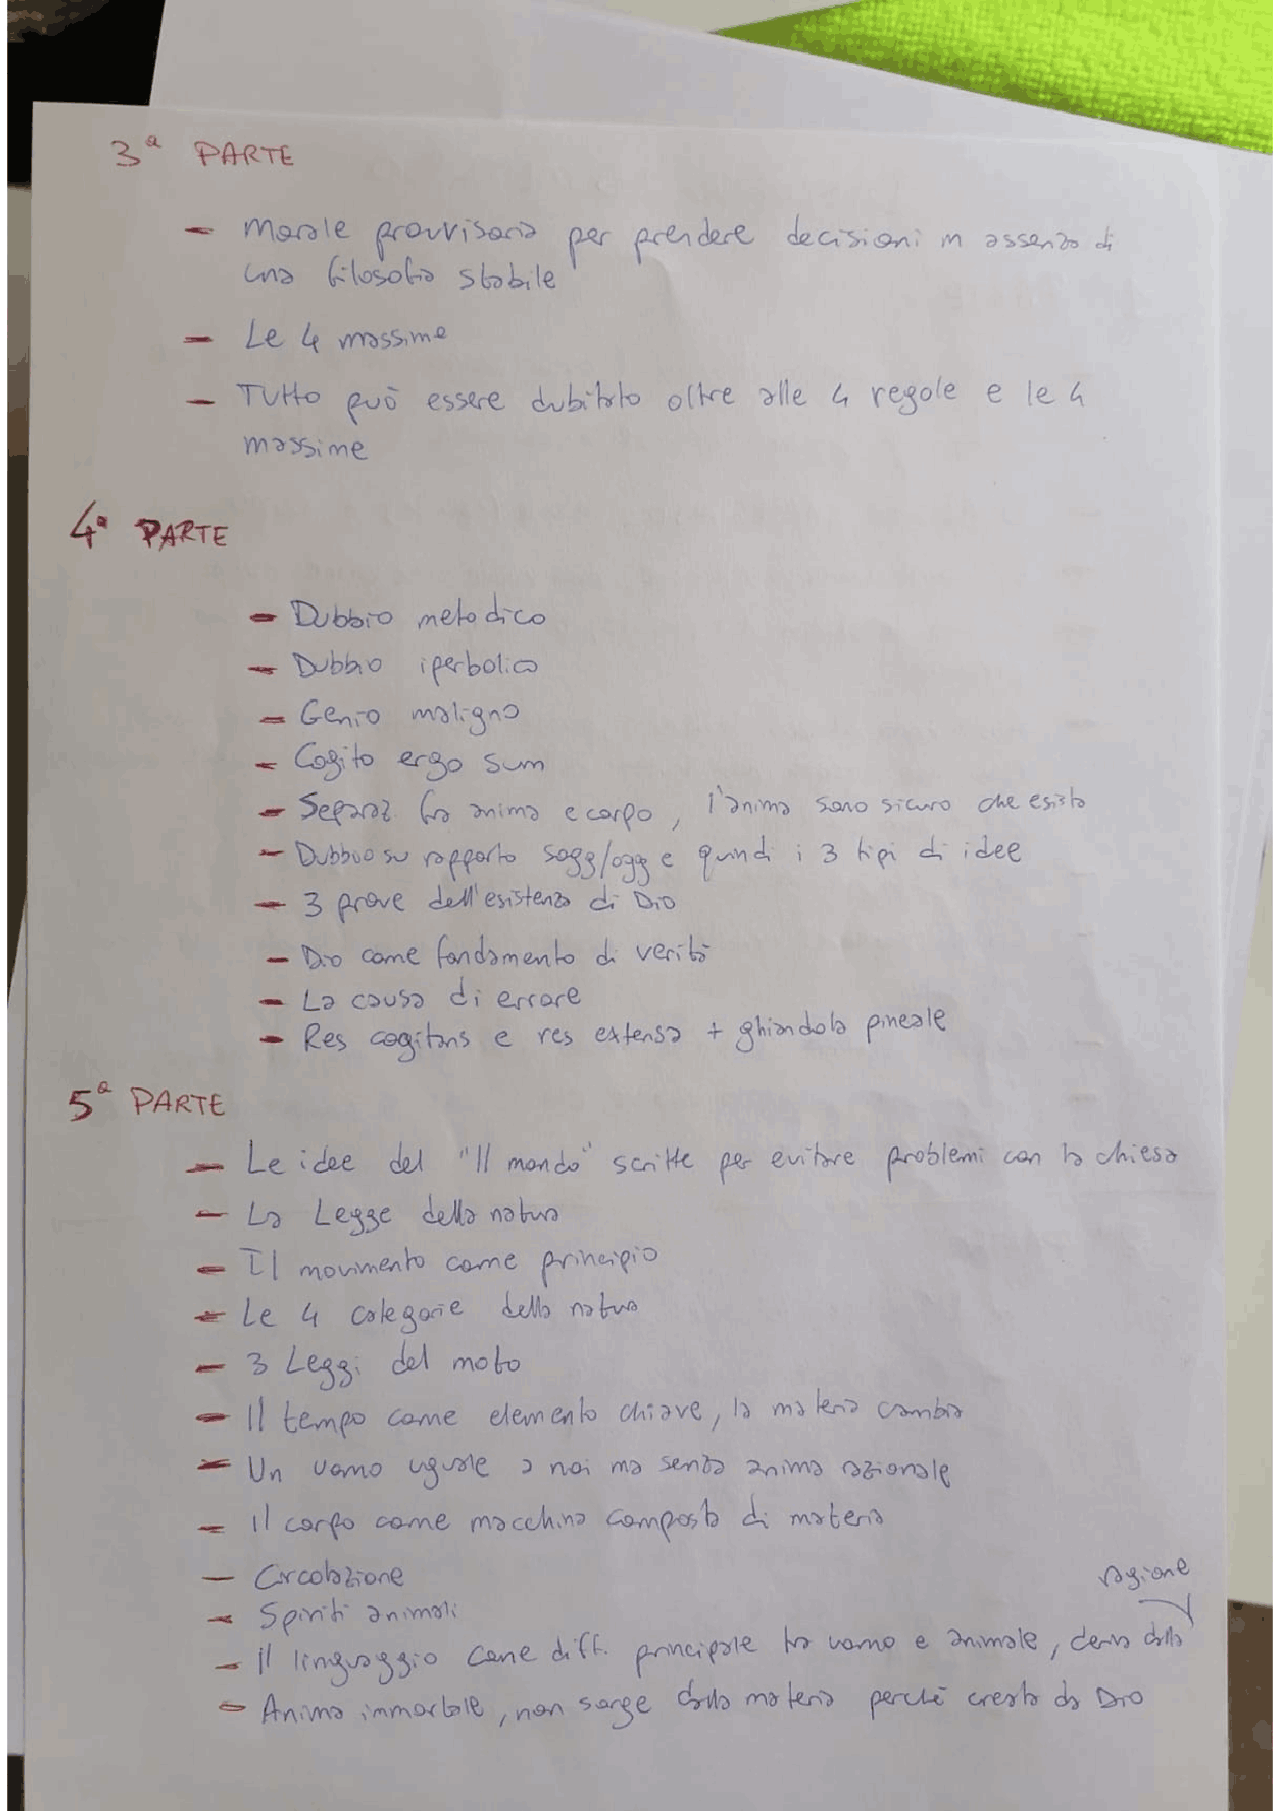 3ª PARTE
- Morale provvisoria per prendere decisioni in assenza di
una filosofia stabile
- Le 4 massime
- Tutto può essere dubitato oltre alle 4 regole e le 4
massime
4ª PARTE
- Dubbio metodico
- Dubbio iperbolico
- Genio maligno
- Cogito ergo sum
- Separaz. fra anima e corpo, l'anima sono sicuro che esista
- Dubbio su rapporto sogg/ogg e quindi i 3 tipi di idee
- 3 prove dell'esistenza di Dio
- Dio come fondamento di verità
- La causa di errore
- Res cogitans e res extensa + ghiandola pineale
5ª PARTE
- Le idee del "Il mondo" scritte per evitare problemi con la chiesa
- La Legge della natura
- Il movimento come principio
- Le 4 categorie della natura
- 3 Leggi del moto
- Il tempo come elemento chiave, la materia cambia
- Un uomo uguale a noi ma senza anima razionale
- Il corpo come macchina composta di materia
- Circolazione
- Spiriti animali
- Il linguaggio come diff. principale tra uomo e animale, deriva dalla
ragione
- Anima immortale, non sorge dalla materia perché creata da Dio